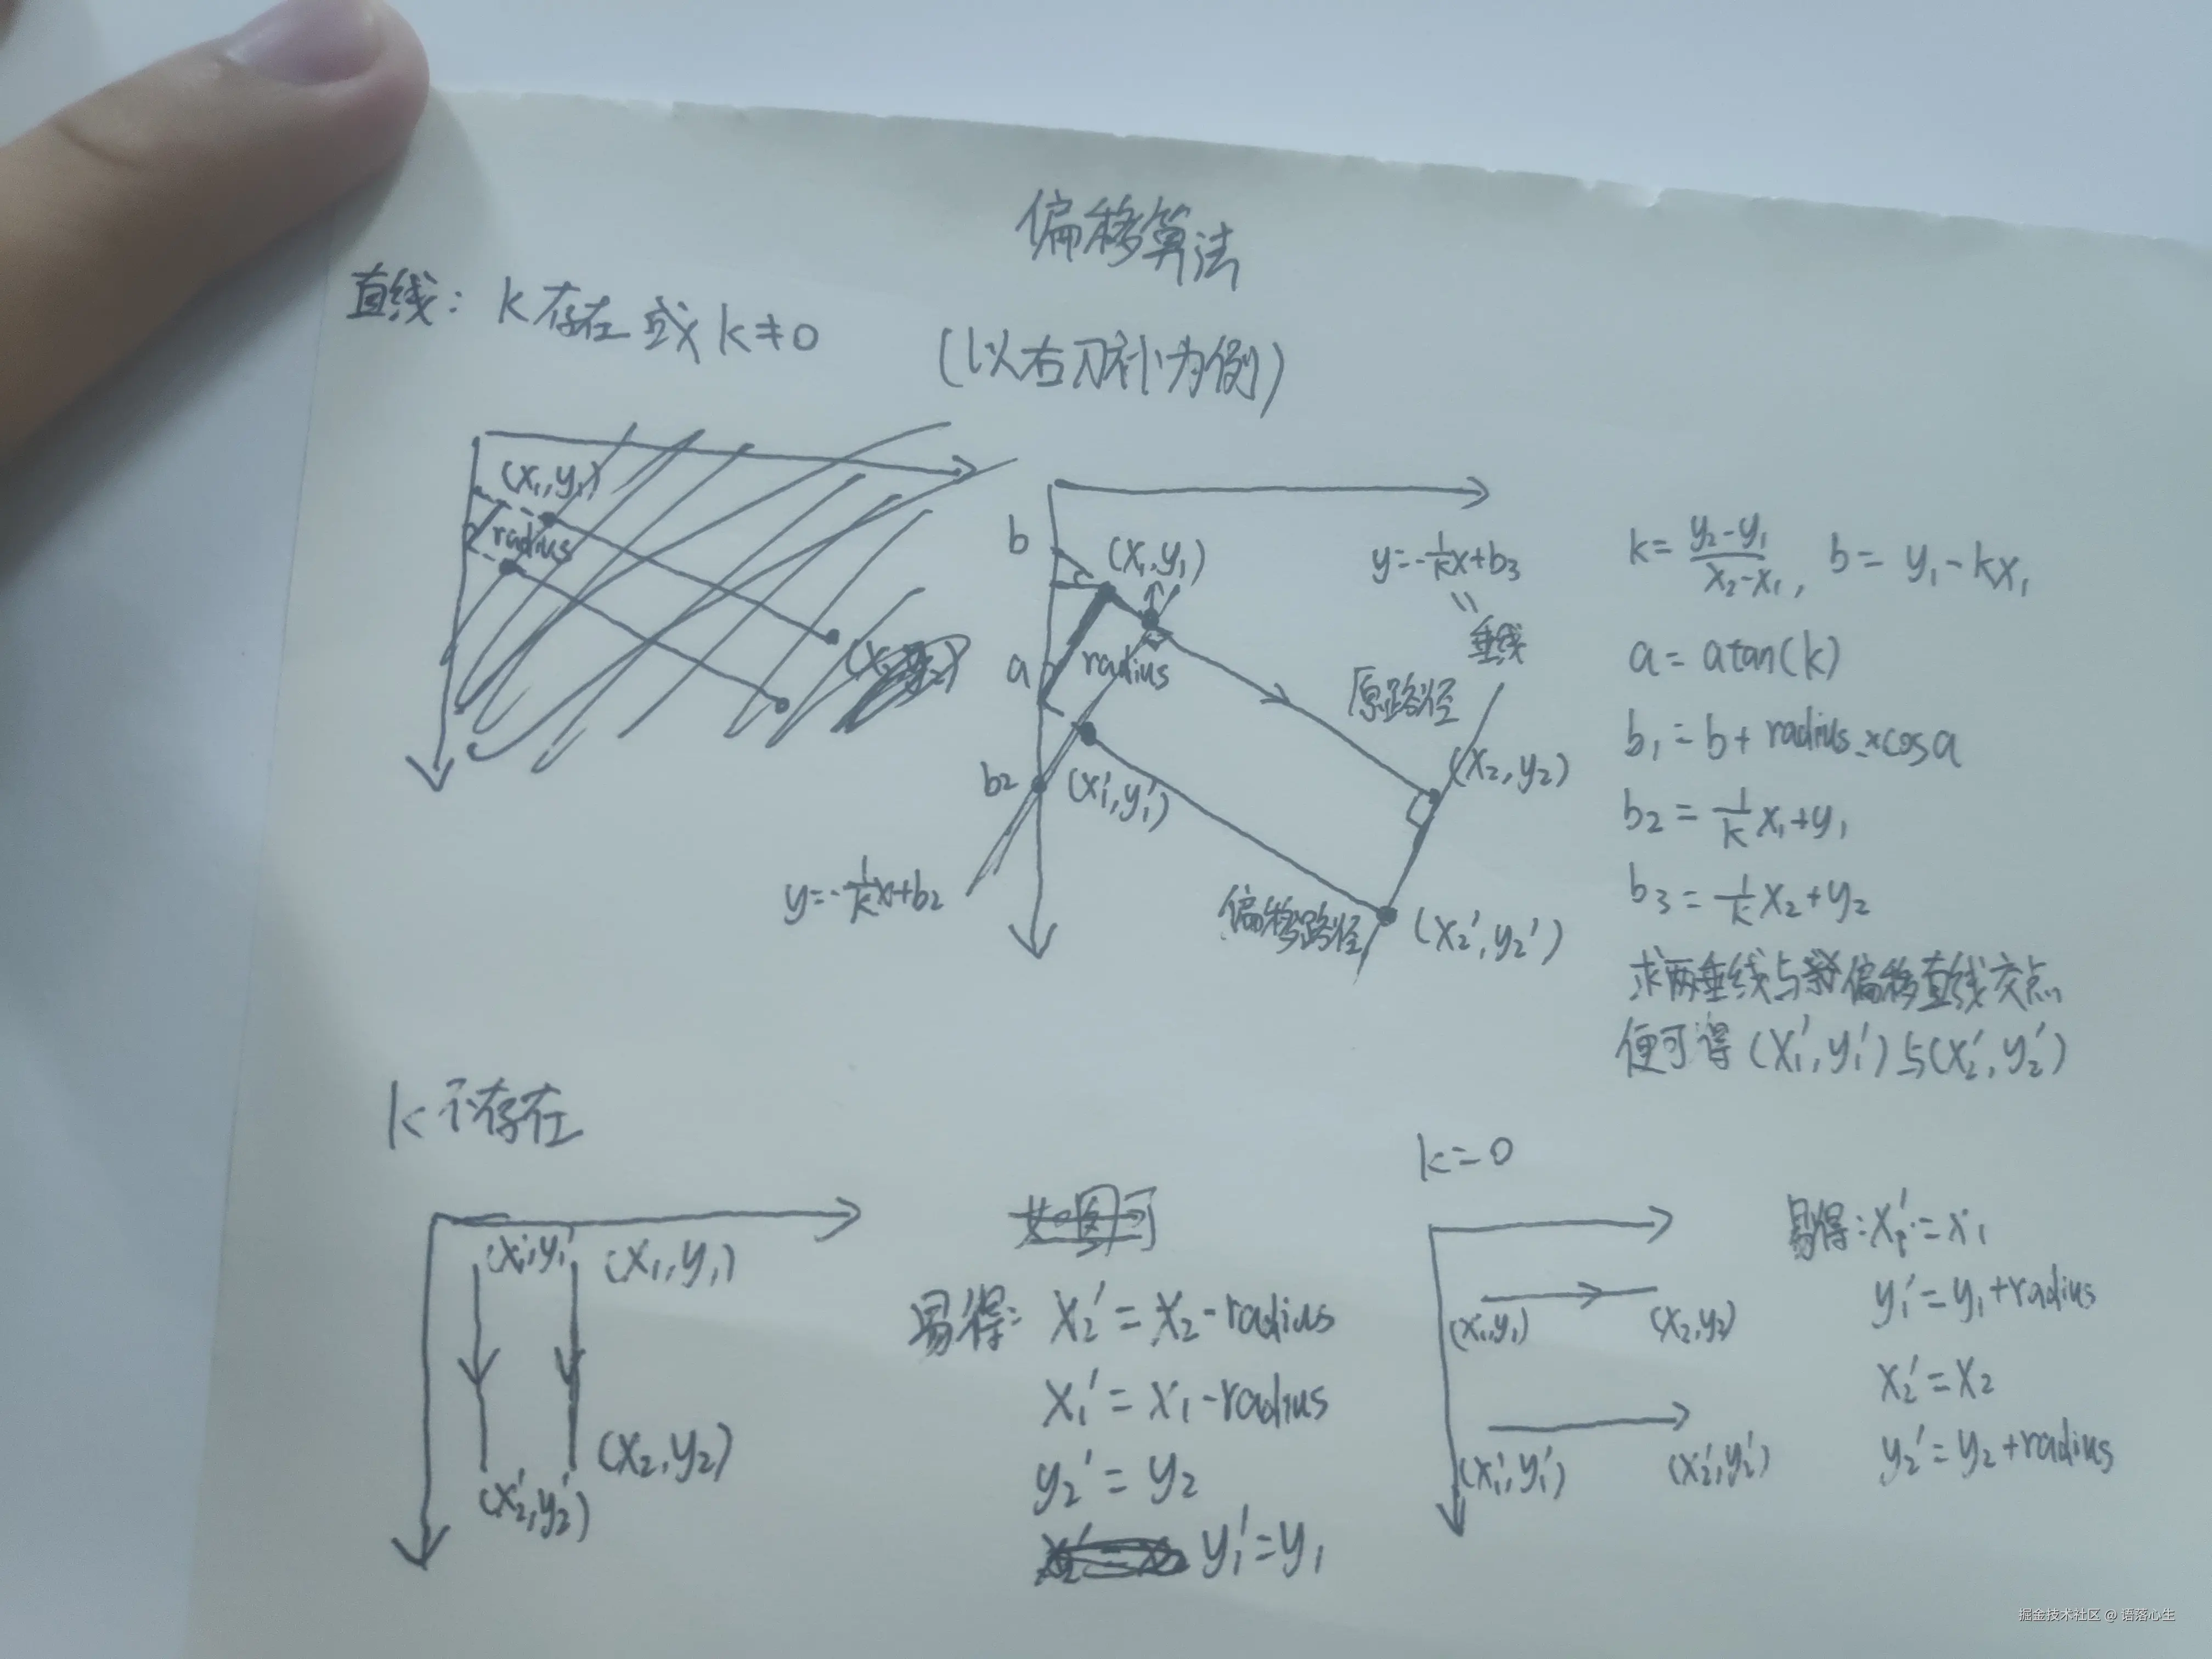 偏移算法
直线: k存在或k≠0
(以右刀补为例)
(x₁,y₁)
radius
b
(x₁,y₁)
y=-1/k x+b₃
垂线
a
radius
原路径
(x₂,y₂)
b₂
(x₁',y₁')
y=-1/k x+b₂
偏移路径
(x₂',y₂')
k=(y₂-y₁)/(x₂-x₁), b=y₁-kx₁
a=atan(k)
b₁=b+radius×cosa
b₂=1/k x₁+y₁
b₃=1/k x₂+y₂
求两垂线与偏移直线交点
便可得(x₁',y₁')与(x₂',y₂')
k不存在
(x₁',y₁'
(x₁,y₁)
(x₂,y₂)
(x₂',y₂')
如图可
易得: x₂'=x₂-radius
x₁'=x₁-radius
y₂'=y₂
y₁'=y₁
k=0
(x₁,y₁)
(x₂,y₂)
(x₁',y₁')
(x₂',y₂')
易得: x₁'=x₁
y₁'=y₁+radius
x₂'=x₂
y₂'=y₂+radius
掘金技术社区 @ 语落心生